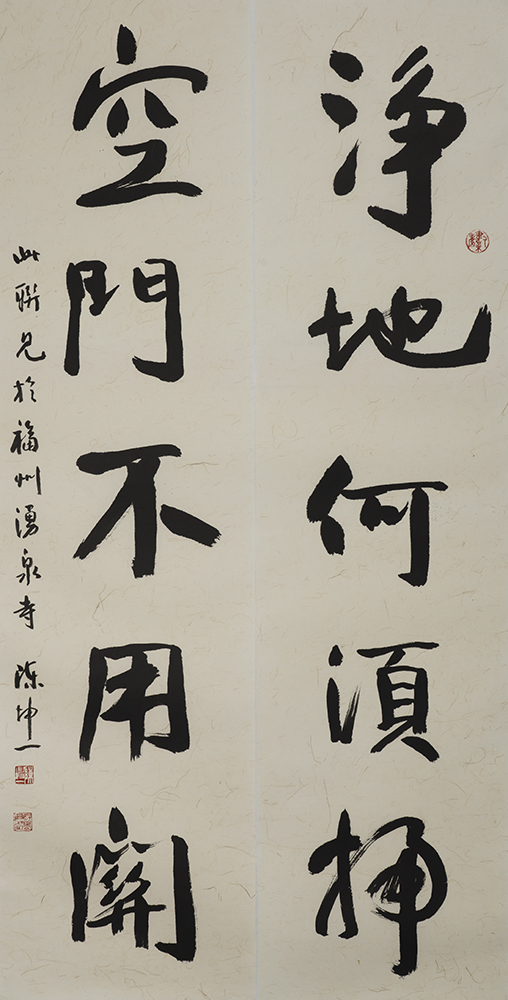 淨地何須掃
空門不用關
此聯見於福州湧泉寺 陳坤一